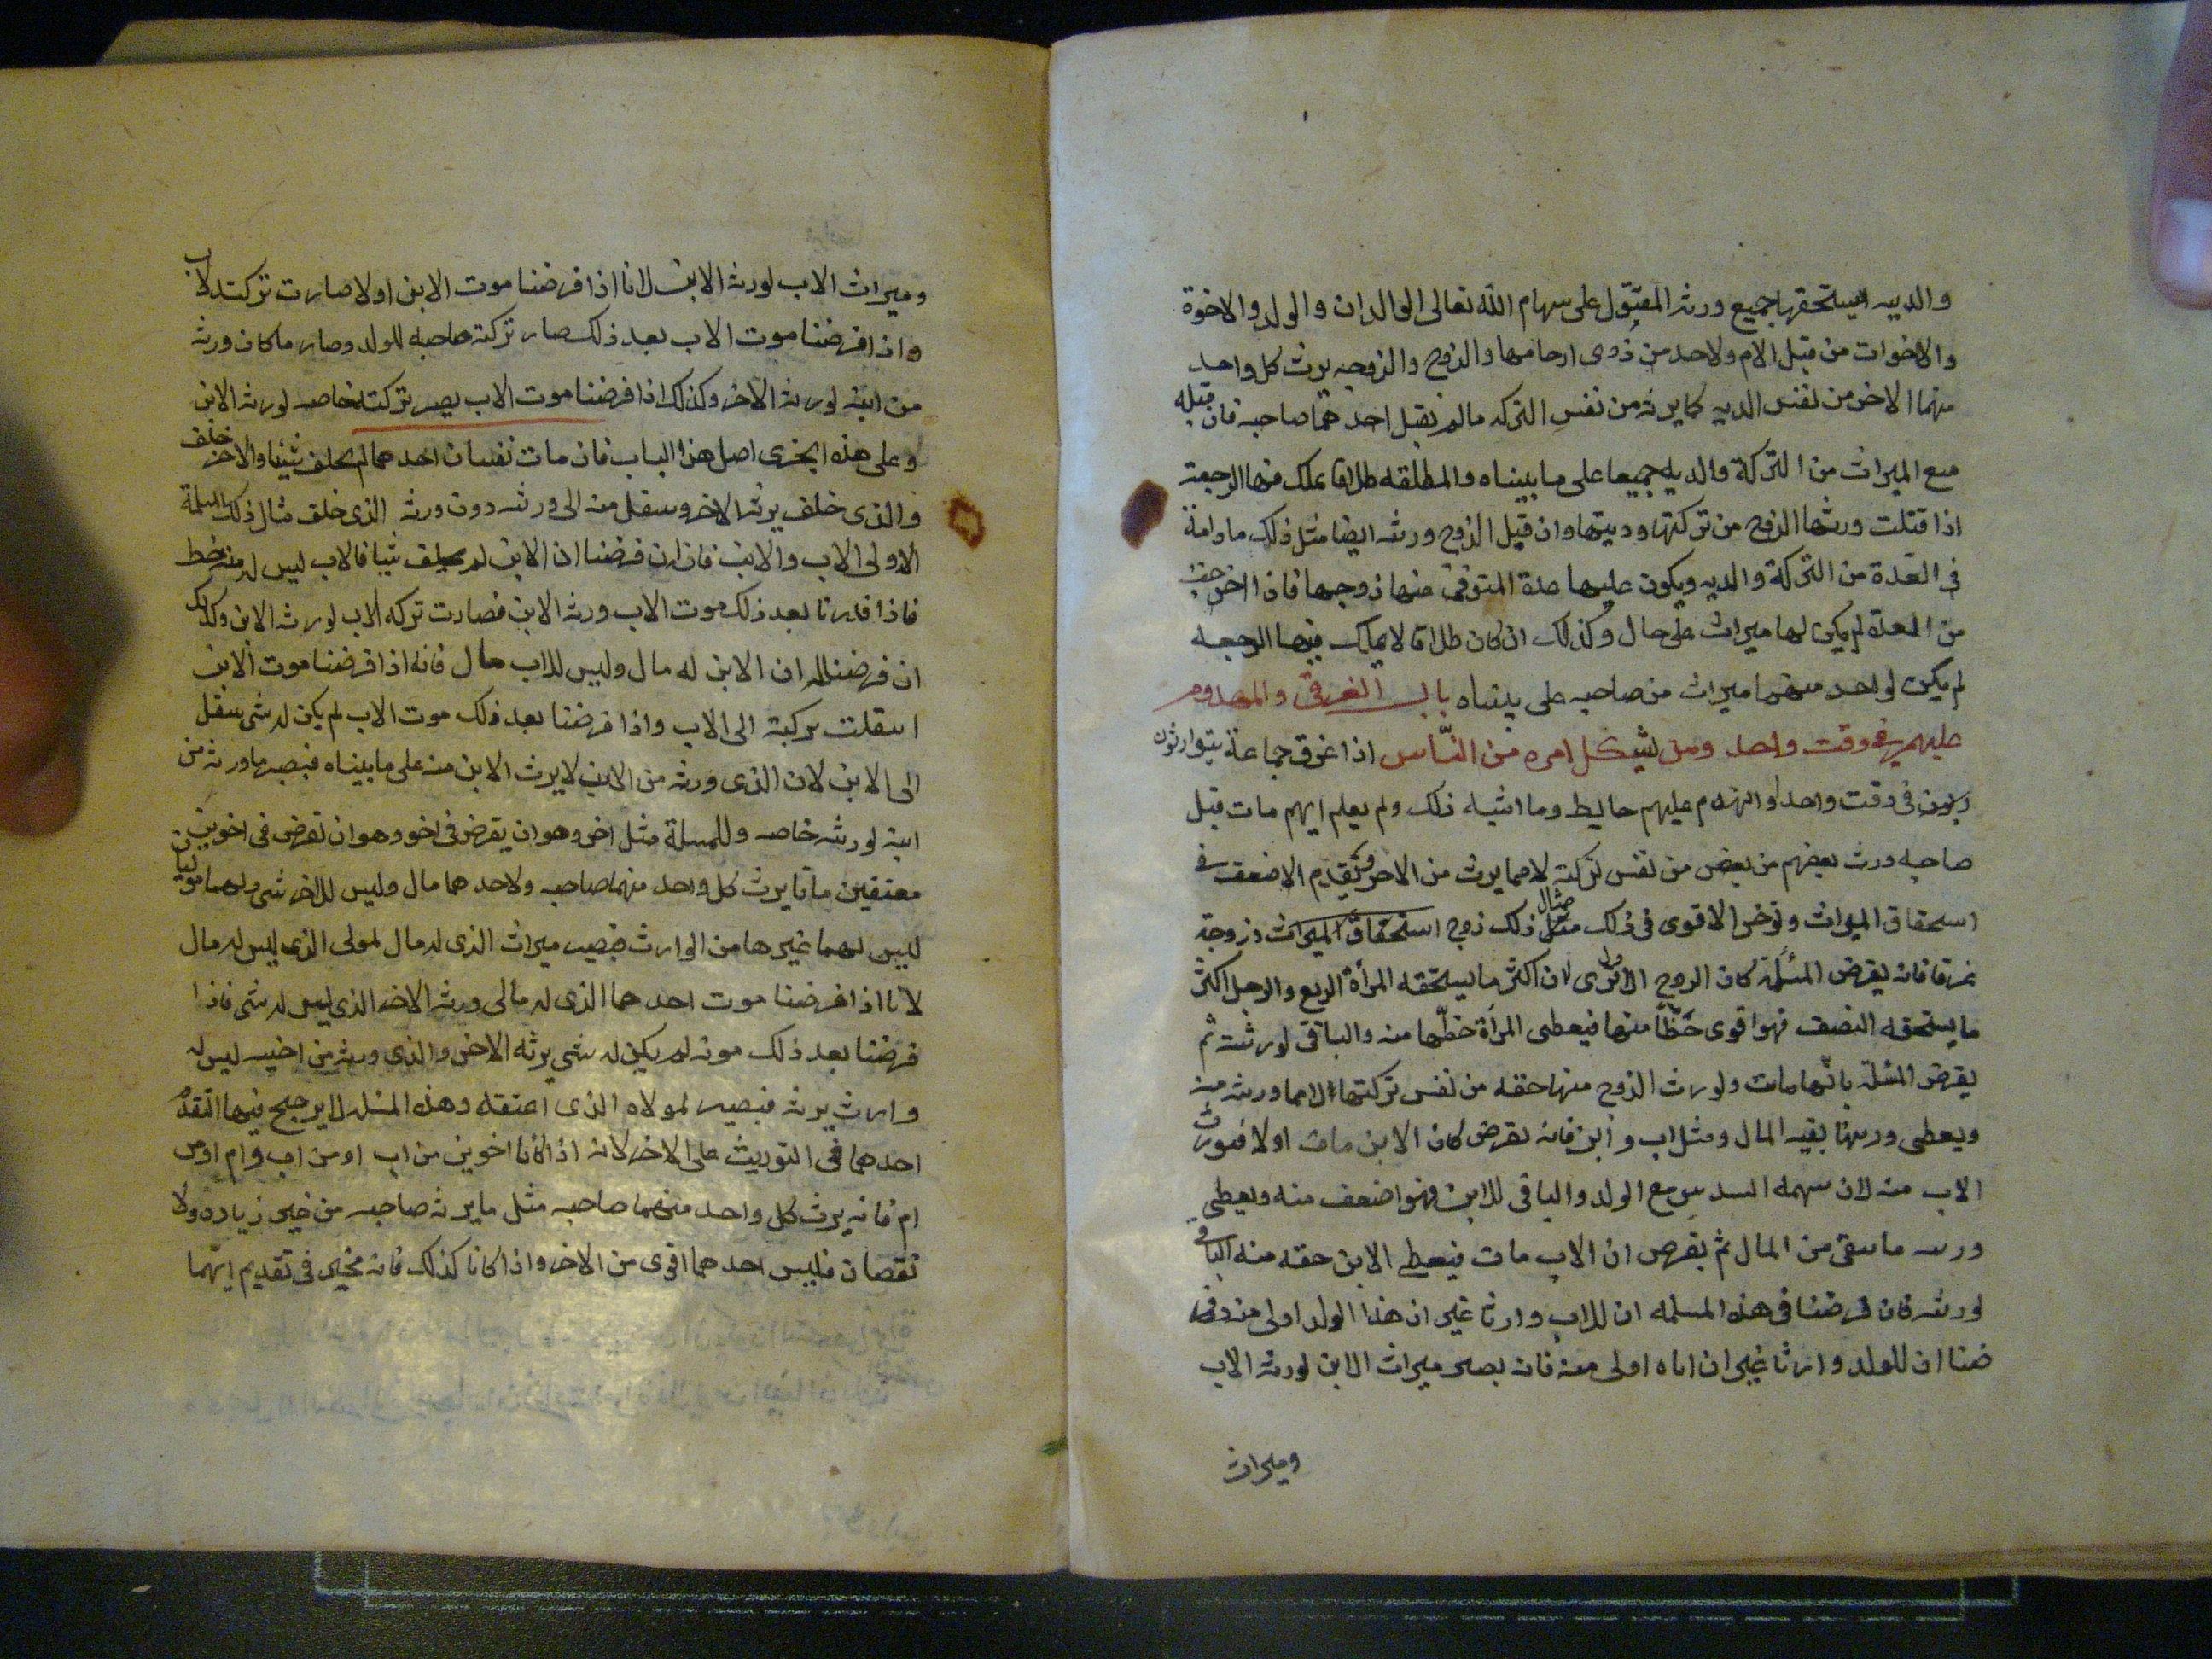 والديه يستحقها جميع ورثه المقتول على سهام الله تعالى الوالدان والولد والاخوة
والاخوات من قبل الام ولاحد من ذوى ارحامها والزوج والزوجه يرث كل واحد
منهما الاخر من نفس الديه كما يرثه من نفس التركه مالم يقتل احدهما صاحبه فان قتله
منع الميراث من التركة والديه جميعا على ما بيناه والمطلقه طلاقا يملك فيها الرجعة
اذا قتلت ورثها الزوج من تركتها وديتها وان قتل الزوج ورثه ايضا مثل ذلك ما دامة
فى العّدة من التركة والديه ويكون عليها عدة المتوفى عنها زوجها فاذا خرجت
من العدة لم يكن لها ميراث على حال وكذلك ان كان طلاقا لا يملك فيها الرجعه
لم يكن لواحد منهما ميراث من صاحبه على بيناه باب الغرقى والمهدوم
عليهم فى وقت واحد ومن يشكل امره من النّاس اذا غرق جماعة يتوارثون
فى وقت واحد او انهدم عليهم حايط وما اشبه ذلك ولم يعلم ايهم مات قبل
صاحبه ورث بعضهم من بعض من نفس تركته لا مما يرث من الاخر وتقدم الاضعف فى
استحقاق الميراث وتوخر الاقوى فى ذلك مثال ذلك زوج استحقاق الميراث وزوجة
غرقا فانه يفرض المسئلة كان الزوج لان اكثر ما يستحقه المرأة الربع والرجل اكثر
ما يستحقه النصف فهو اقوى حّظاً منها فيعطى المرأة حظّها منه والباقى لورثته ثم
يفرض المسئلة بانّها ماتت ولورث الزوج منها حقه من نفس تركتها لا مما ورثه منه
ويعطى ورثتها بقيه المال ومثل اب وابن فانه يفرض كان الابن مات اولا فيورث
الاب منه لان سهمه السدس مع الولد والباقى للابن فهو اضعف منه ويعطى
ورثه ما بقى من المال ثم يفرض ان الاب مات فيعطى الابن حقه منه الباقى
لورثه فان فرضنا فى هذه المسله ان للاب وارثا غير ان هذا الولد اولى منه وفر
ضنا ان للولد وارثا غير ان اباه اولى منه فان يصير ميراث الابن لورثه الاب
وميراث
وميراث الاب لورثه الابن لانا اذا فرضنا موت الابن اولا صارت تركته لاب
واذا فرضنا موت الاب بعد ذلك صار تركته صاحبه للولد وصار ما كان ورثه
من ابنه لورثه الاخر وكذلك اذا فرضنا موت الاب يصير تركته خاصه لورثه الابن
وعلى هذه يجرى اصل هذا الباب فان مات نفسان احدهما لم يخلف شيئا والاخر خلف
والذى خلف يرثه الاخر وينتقل منه الى ورثه دون ورثه الذى خلف مثال ذلك المسلة
الاولى الاب والابن فان فرضنا ان الابن لم يخلف شيا فالاب ليس له منه حظ
فاذا قدرنا بعد ذلك موت الاب ورثه الابن فصارت تركه الاب لورثه الابن وكذلك
ان فرضنا ان الابن له مال وليس للاب مال فانه اذا فرضنا موت الابن
انتقلت تركته الى الاب واذا فرضنا بعد ذلك موت الاب لم يكن له شى ينتقل
الى الابن لان الذى ورثه من الابن لا يرث الابن منه على ما بيناه فيصير ما ورثه من
ابنه لورثه خاصه وللمسلة مثل اخر وهو ان يفرض فى اخو وهو ان تفرض فى اخوين
معتقين ماتا يرث كل واحد منهما صاحبه ولاحدهما مال وليس للاخر شى ولهما موليان
ليس لهما غيرها من الوارث فيصير ميراث الذى له مال لمولى الذى ليس له مال
لانا اذا فرضنا موت احدهما الذى له مال ورثه الاخر الذى ليس له شى فاذا
فرضنا بعد ذلك موته لم يكن له شى يرثه الاخر والذى ورثه من اخيه ليس له
وارث يرثه فيصير لمولاه الذى اعتقه وهذه المسئله لا يرجح فيها التقد
احدهما فى التوريث على الاخر لانه اذا كانا اخوين من اب او من اب وام او من
ام فانه يرث كل واحد منهما صاحبه مثل ما يرثه صاحبه من غير زياده ولا
نقصان فليس احدهما اقوى من الاخر واذا كانا كذلك فانه مخير فى تقديم ايّهما